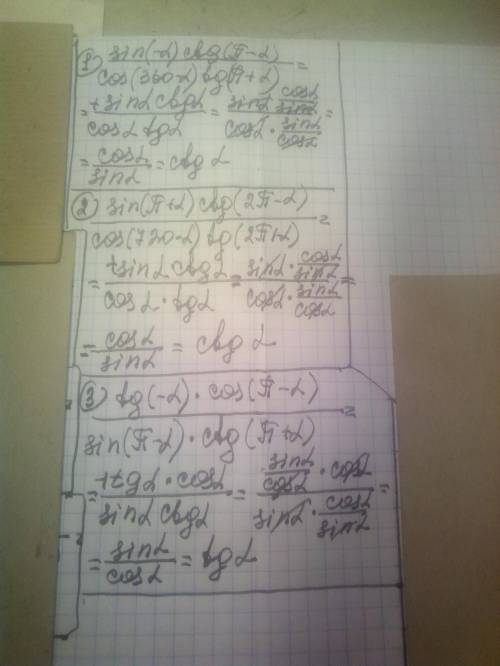 ① sin(-α) ctg(π-α) / cos(360-α) tg(π+α) =
= +sinα ctgα / cosα tgα = sinα cosα/sinα / cosα · sinα/cosα =
= cosα/sinα = ctg α
② sin(π+α) ctg(2π-α) / cos(720-α) tg(2π+α) =
= +sinα ctgα / cosα · tgα = sinα · cosα/sinα / cosα · sinα/cosα =
= cosα/sinα = ctg α
③ tg(-α) · cos(π-α) / sin(π-α) · ctg(π+α) =
= +tgα · cosα / sinα ctgα = sinα/cosα · cosα / sinα · cosα/sinα =
= sinα/cosα = tgα